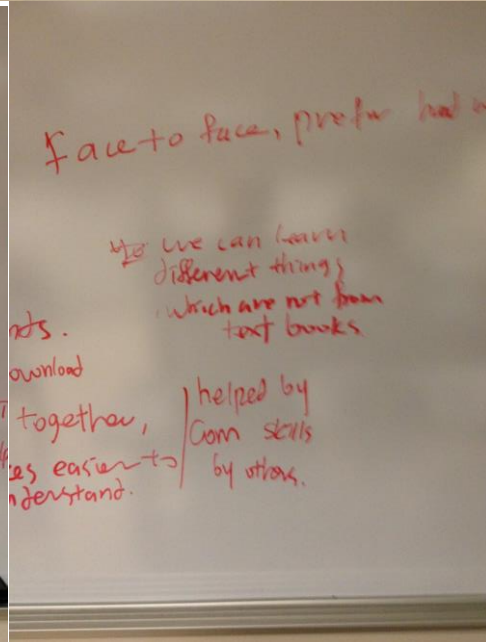 face to face, prefer had
we can learn
different things
which are not from
text books.
nts.
ownload
together,
es easier to
nderstand.
helped by
Com skills
by others.